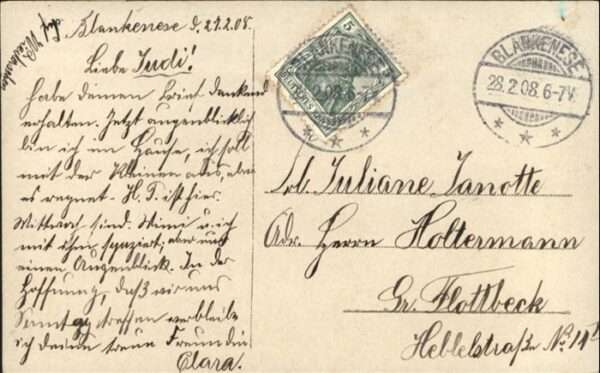 Auf Wiedersehn
Blankenese d. 27.2.08.
Liebe Judi!
habe deinen Brief dankend
erhalten. Jetzt augenblicklich
bin ich im Hause, ich soll
mit der Kleinen aus, aber
es regnet. H. T. ist hier.
Mittwoch sind Mimi u. ich
mit ihm spaziert; aber nur
einen Augenblick. In der
Hoffnung, daß wir uns
Sonntag treffen verbleibe
ich deine treue Freundin
Clara.
5
BLANKENESE
2.08.6-7
BLANKENESE
28.2.08.6-7V.
Juliane Janotte
Adr. Herrn Holtermann
Gr. Flottbeck
Hebbelstraße No. 11